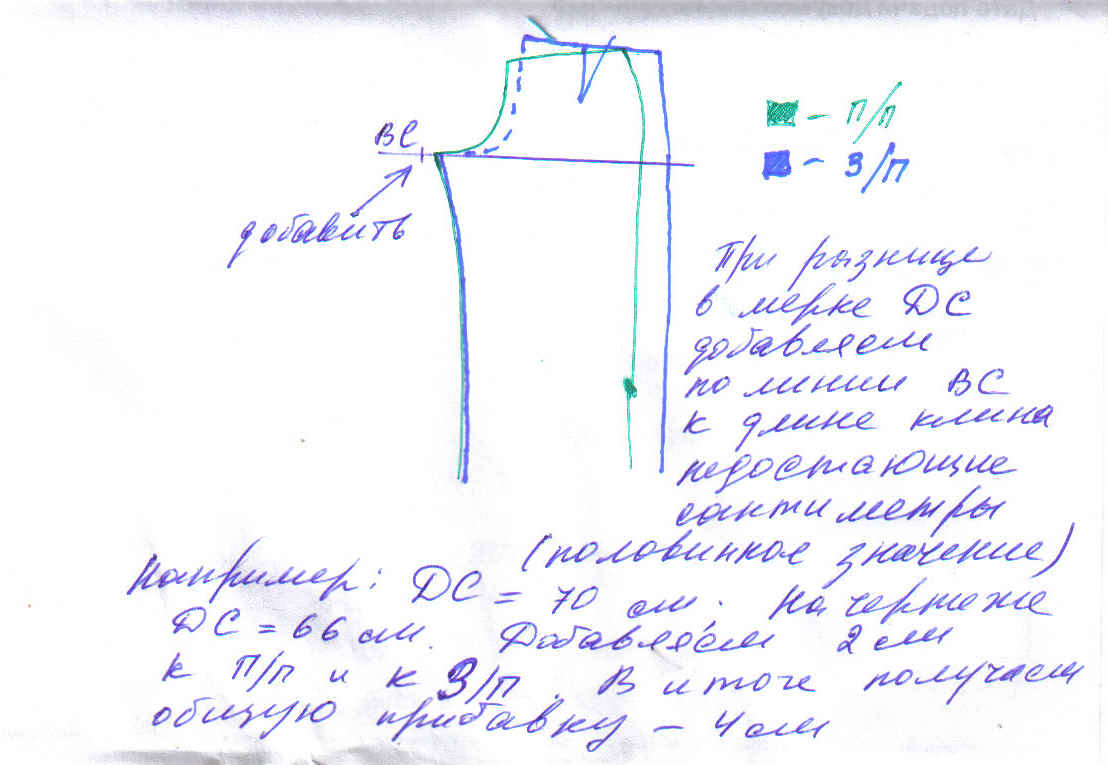 ВС
добавить
– п/п
– З/П
При разнице
в мерке ДС
добавляем
по линии ВС
к длине клина
недостающие
сантиметры
(половинное значение)
Например: ДС = 70 см. На чертеже
ДС = 66 см. Добавляем 2 см
к П/п и к З/П. В итоге получаем
общую прибавку – 4 см